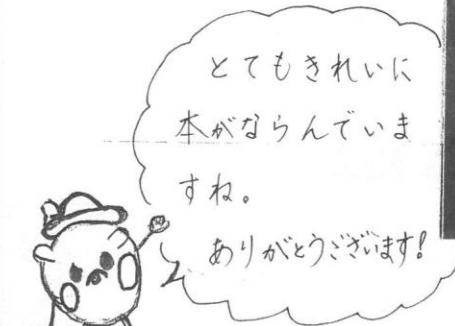 とてもきれいに
本がならんでいま
すね。
ありがとうございます!